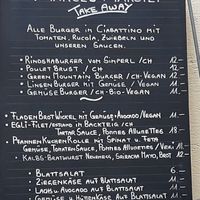 TAKE AWAY
ALLE BURGER IN CIABATTINO MIT
TOMATEN, RUCOLA, ZWIEBELN UND
UNSEREN SAUCEN.
- RINDSHABURGER VOM SIMPERL /CH 12.-
- POULET BRUST /CH 11.-
- GREEN MOUNTAIN BURGER /CH-VEGAN 12.-
- LINSEN BURGER MIT GEMÜSE / VEGAN 11.-
- GEMÜSE BURGER /CH-BIO-VEGAN 11.-
- FLADENBROT WICKEL MIT GEMÜSE-AVOCADO/VEGAN 11.-
- EGLI-FILET/ESTLAND IN BACKTEIG /CH
TARTAR SAUCE, POMMES ALLUMETTES 18.-
- PFANNENKUCHEN ROLLE MIT SPINAT U. FETA
GEMÜSE, TOMATENSAUCE, POMMES ALLUMETTES / 11.-
- KALBS-BRATWURST SENF, BROT 12.-
- BLATTSALAT 6.-
- ZIEGENKÄSE AUF BLATTSALAT
- LACHS U. AVOCADO AUF BLATTSALAT
- GEMÜSE U. HÜTTENKÄSE AUF BLATTSALAT